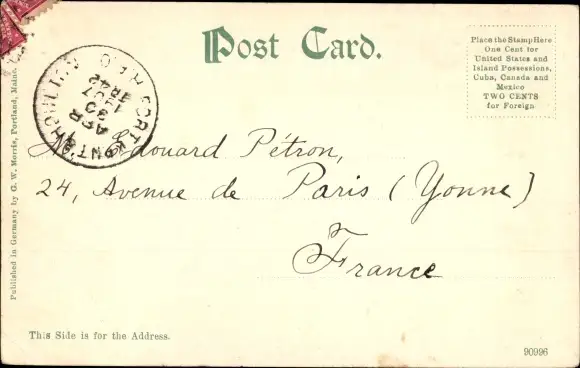 Post Card.
Place the Stamp Here
One Cent for
United States and
Island Possessions,
Cuba, Canada and
Mexico
TWO CENTS
for Foreign
APR
30
1907
Edouard Pétron,
24, Avenue de Paris (Yonne)
France
Published in Germany by G. W. Morris, Portland, Maine.
This Side is for the Address.
90996